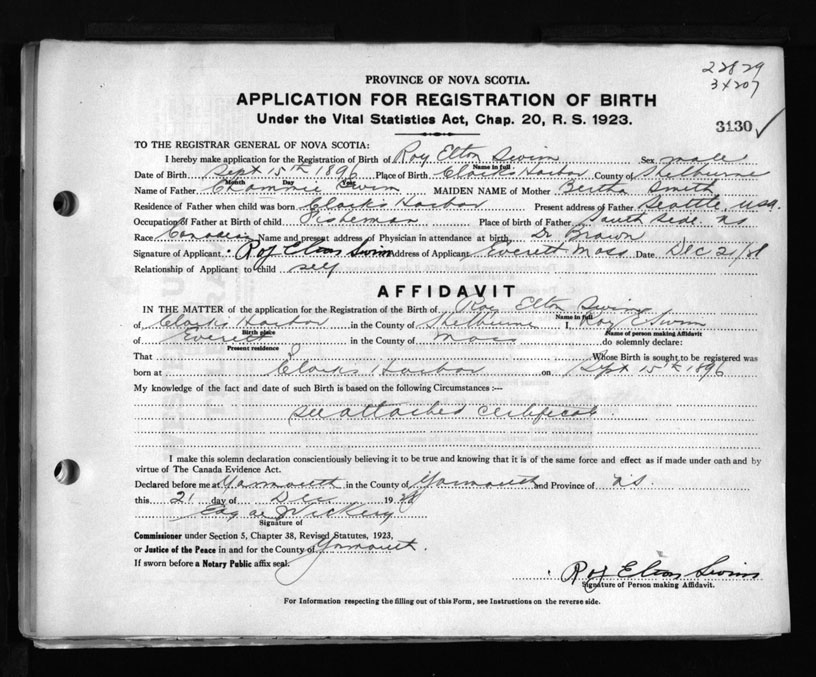 22829
34207
PROVINCE OF NOVA SCOTIA.
APPLICATION FOR REGISTRATION OF BIRTH
Under the Vital Statistics Act, Chap. 20, R. S. 1923.
3130 ✓
TO THE REGISTRAR GENERAL OF NOVA SCOTIA:
I hereby make application for the Registration of Birth of Roy Elton Swim Sex male
Name in full
Date of Birth Sept 15th 1896 Place of Birth Clarks Harbor County of Shelburne
Month Day Year
Name of Father Swim MAIDEN NAME of Mother Bertha Smith
Residence of Father when child was born Clarks Harbor Present address of Father Seattle, USA.
Occupation of Father at Birth of child Fisherman Place of birth of Father South Side NS
Race Canadian Name and present address of Physician in attendance at birth Dr Brown
Signature of Applicant Roy Elton Swim Address of Applicant Everett Mass Date Dec 21/28
Relationship of Applicant to Child self
AFFIDAVIT
IN THE MATTER of the application for Registration of the Birth of Roy Elton Swim
Name in full
of Clarks Harbor in the County of Shelburne I, Roy E Swim
Birth place Name of person making Affidavit
of Everett in the County of Mass do solemnly declare:
Present residence
That Whose Birth is sought to be registered was
born at Clarks Harbor on Sept 15th 1896
My knowledge of the fact and date of such Birth is based on the following Circumstances :—
see attached certificate.
I make this solemn declaration conscientiously believing it to be true and knowing that it is of the same force and effect as if made under oath and by
virtue of The Canada Evidence Act.
Declared before me at Yarmouth in the County of Yarmouth and Province of NS.
this 21 day of Dec 1928
Vickery
Signature of
Commissioner under Section 5, Chapter 38, Revised Statutes, 1923,
or Justice of the Peace in and for the County of Yarmouth.
If sworn before a Notary Public affix seal.
Roy Elton Swim
Signature of Person making Affidavit.
For Information respecting the filling out of this Form, see Instructions on the reverse side.